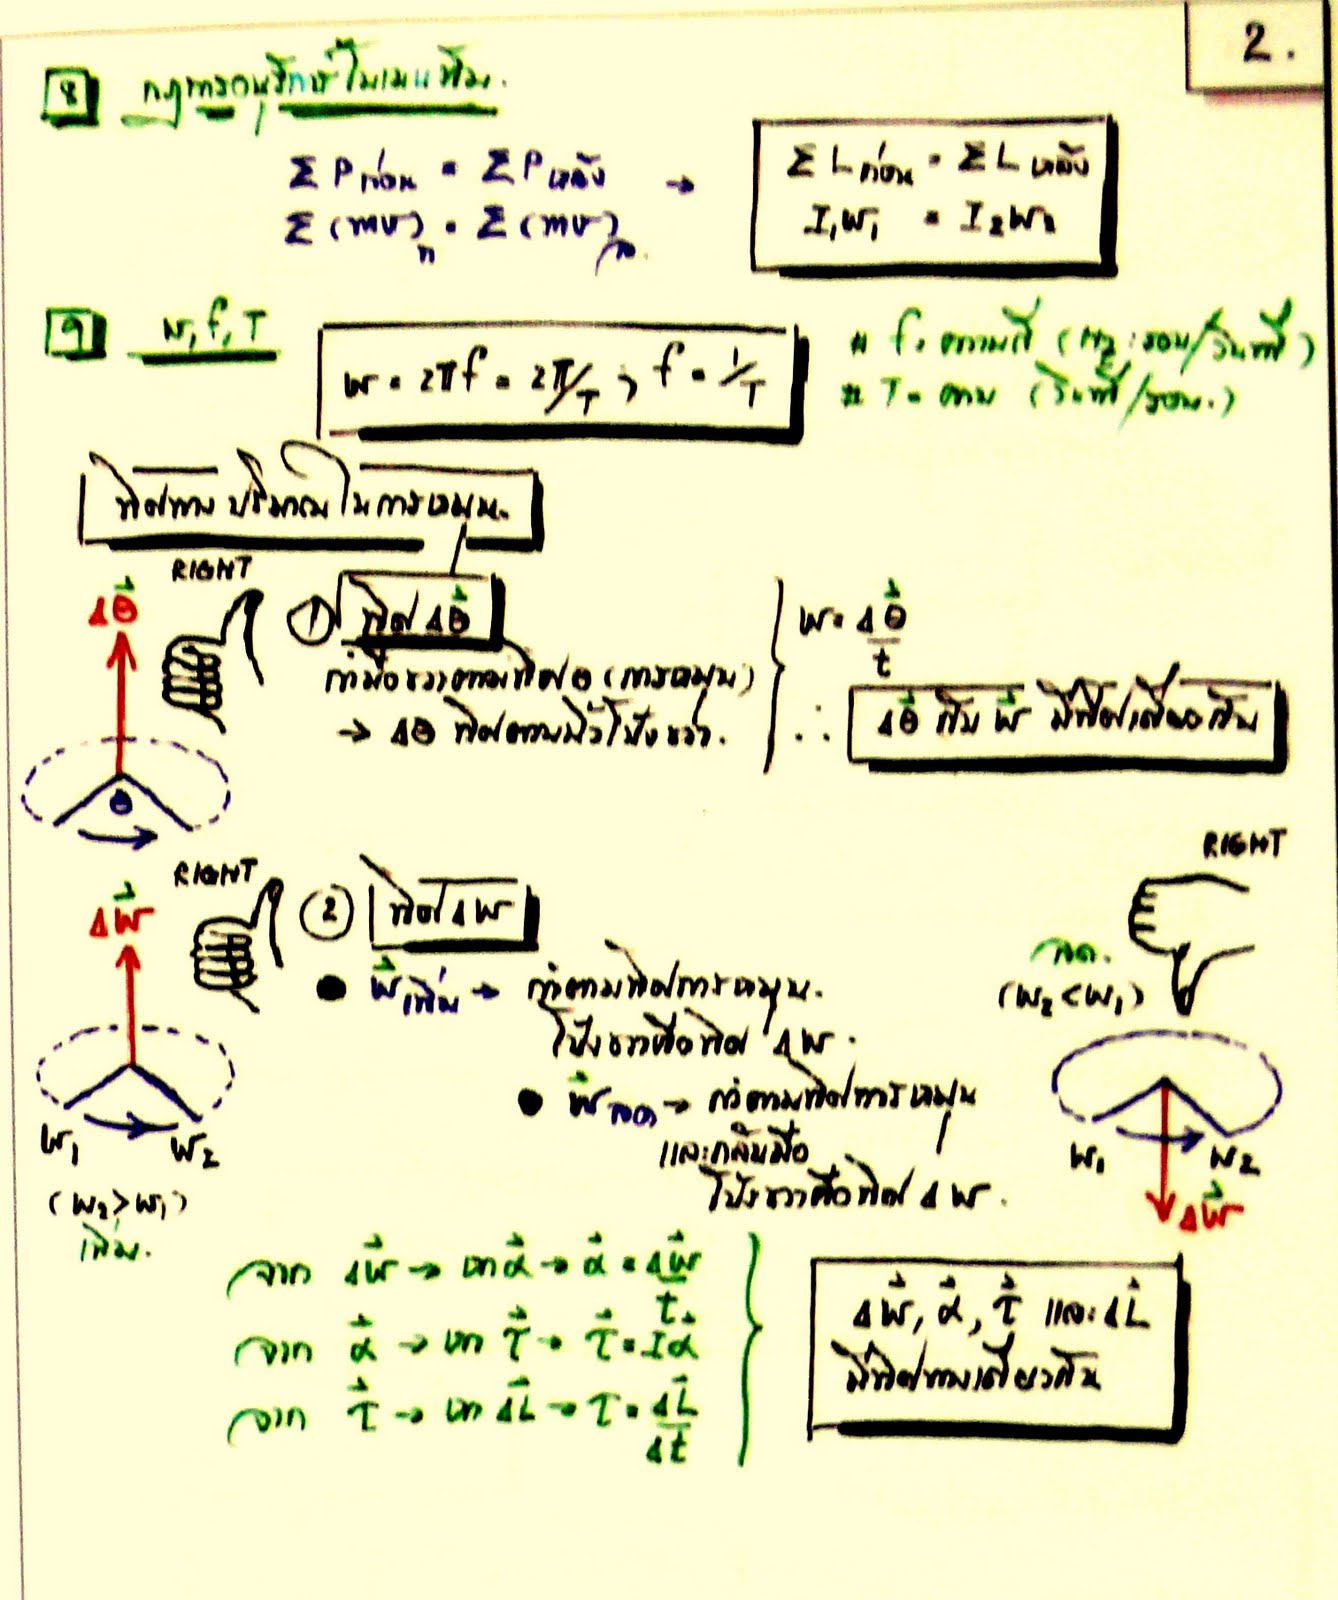 2.
8 กฎการอนุรักษ์โมเมนตัม.
Σ Pก่อน = Σ Pหลัง → Σ Lก่อน = Σ Lหลัง
Σ (mv)ก = Σ (mv)ห. I₁ω₁ = I₂ω₂
9 ω, f, T
ω = 2πf = 2π/T ; f = 1/T
# f = ความถี่ (Hz ; รอบ/วินาที)
# T = คาบ (วินาที/รอบ.)
ทิศทาง ปริมาณในการหมุน.
RIGHT
Δθ⃗
① ทิศ Δθ⃗
กำมือขวาตามทิศ θ (การหมุน)
→ Δθ ทิศตามนิ้วโป้งขวา.
ω = Δθ⃗/t
∴ Δθ⃗ กับ ω⃗ มีทิศเดียวกัน
θ
RIGHT
Δω⃗
② ทิศ Δω
● ω⃗เพิ่ม → กำตามทิศการหมุน.
โป้งขวาคือทิศ Δω.
● ω⃗ลด → กำตามทิศการหมุน
และกลับมือ
โป้งขวาคือทิศ Δω.
ω₁ ω₂
(ω₂>ω₁)
เพิ่ม.
RIGHT
ลด.
(ω₂<ω₁)
ω₁ ω₂
Δω⃗
จาก Δω⃗ → หา α⃗ → α⃗ = Δω⃗/t
จาก α⃗ → หา τ⃗ → τ⃗ = Iα⃗
จาก τ⃗ → หา ΔL⃗ → τ = ΔL⃗/Δt
Δω⃗, α⃗, τ⃗ และ ΔL⃗
มีทิศทางเดียวกัน